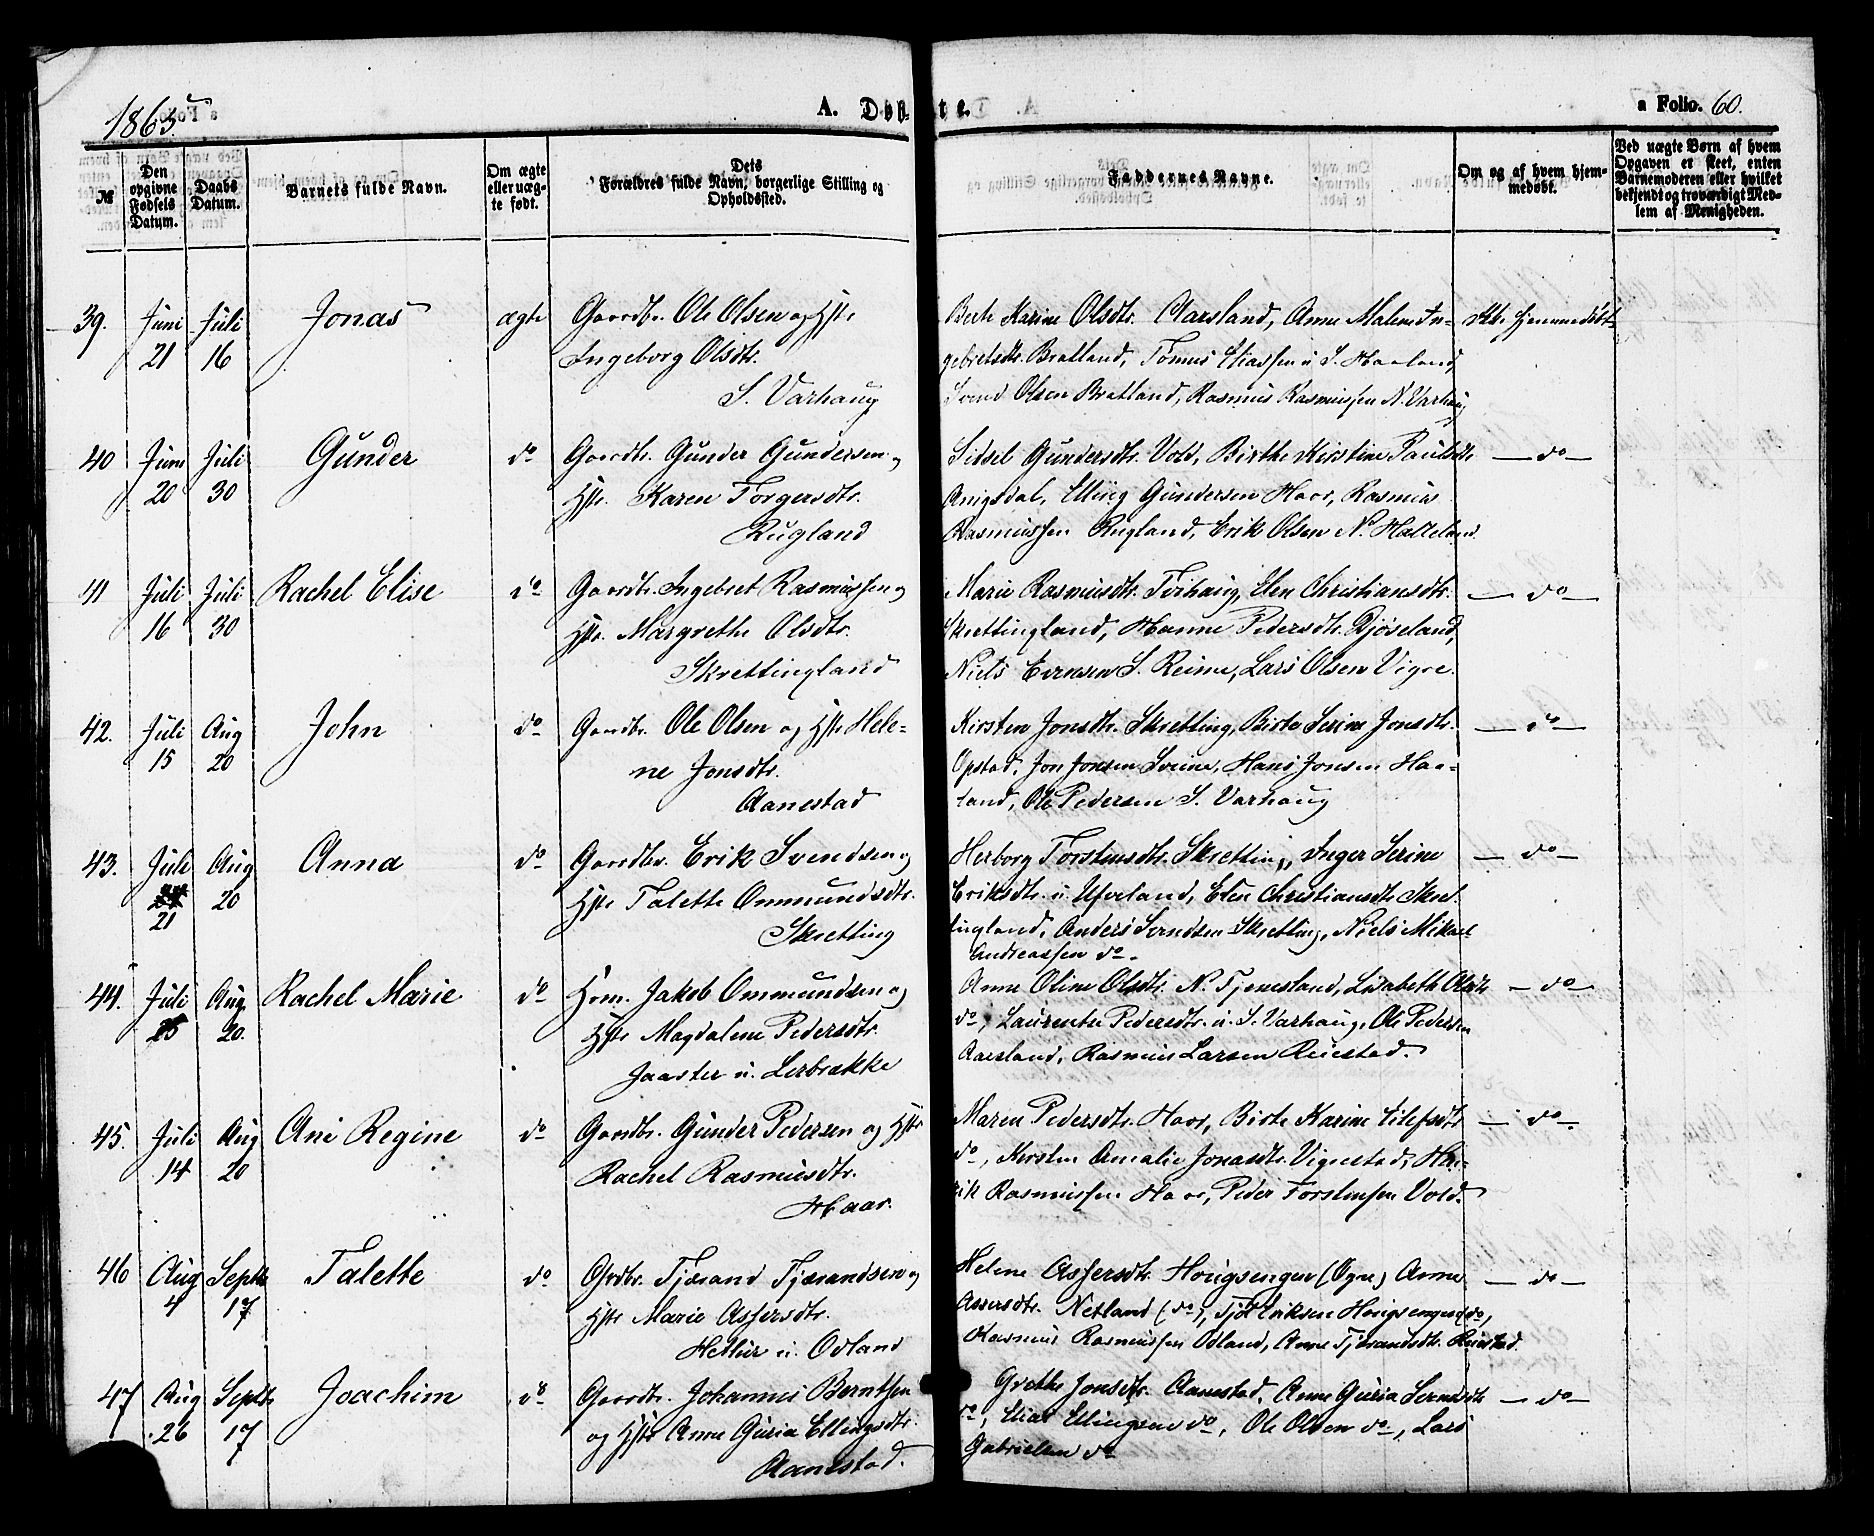 1865
A. Døbte.
a Folio. 60.
№
Den opgivne Fødsels Datum.
Daabs Datum.
Barnets fulde Navn.
Om ægte eller uægte født.
Dets Forældres fulde Navn, borgerlige Stilling og Opholdssted.
Faddernes Navne.
Om og af hvem hjemmedøbt.
Ved uægte Børn af hvem Opgaven er skeet, enten Barnemoderen eller hvilket bekjendt og troværdigt Medlem af Menigheden.
39. Juni 21 Juli 16 Jonas ægte
Gaardbr. Ole Olsen og Hstr
Ingeborg Olsdtr.
S. Varhaug
Berte Karine Olsdtr. Aarsland, Anne Malene In-
gebretsdtr. Bratland, Tønnes Eliassen u. S. Haaland,
Svend Olsen Bratland, Rasmus Rasmussen N. Varhaug
Ikke hjemmedøbt
40 Juni 20 Juli 30 Gunder do
Gaardbr. Gunder Gundersen og
Hstr. Karen Torgersdtr.
Rugland
Sidsel Gundersdtr. Vold, Birthe Kirstine Paulsdtr
Anigsdal, Elling Gundersen Haar, Rasmus
Rasmussen Rugland, Erik Olsen N. Hatteland.
— do —
41 Juli 16 Juli 30 Rachel Elise do
Gaardbr. Ingebret Rasmussen og
Hstr. Margrethe Olsdtr.
Skrettingland
Marie Rasmusdtr. Torhaug, Elen Christiansdtr.
Skrettingland, Hanne Pedersdtr. Gjøseland,
Niels Evensen S. Reime, Lars Olsen Vigre.
— do —
42. Juli 15 Aug 20 John do
Gaardbr. Ole Olsen og Hstr Hele-
ne Jonsdtr.
Aanestad
Kirsten Jonsdtr. Skretting, Birte Serine Jonsdtr.
Opstad, Jon Jonsen Sveine, Hans Jonsen Haa-
land, Ole Pedersen S. Varhaug
— do —
43. Juli 21 Aug 20 Anna do
Gaardbr. Erik Svendsen og
Hstr Talette Ommundsdtr.
Skretting
Herborg Torstensdtr. Skretting, Inger Serine
Eriksdtr. u. Ueland, Elen Christiansdtr Skret-
tingland, Anders Svendsen Skretting, Niels Mikael
Andreassen do.
— do —
44. Juli 25 Aug. 20. Rachel Marie do
Hrm. Jakob Ommundsen og
Hstr Magdalene Pedersdtr.
Jaaster u. Lerbrække
Anne Oline Olsdtr. N. Tjemsland, Lisabeth Olsdtr
do, Laurentse Pedersdtr. u. S. Varhaug, Ole Pedersen
Aarsland, Rasmus Larsen Reiestad.
— do —
45. Juli 14 Aug 20 Ane Regine do
Gaardbr. Gunder Pedersen og Hstr
Rachel Rasmusdtr.
Haar.
Maren Pedersdtr. Haar, Birte Karine Eilefsdtr
do, Kirsten Amalie Jonasdtr. Vigrestad, Hen-
rik Rasmussen Haar, Peder Torstensen Vold.
— do —
46 Aug 4 Septb 17 Talette do
Grdbr. Tjærand Tjærandsen og
Hstr Marie Assersdtr.
Hetlur u. Odland
Helene Assersdtr. Hougsengen (Ogne) Anne
Assersdtr. Netland (do), Tjøl Eriksen Hougsengen (do),
Rasmus Rasmussen Odland, Anne Tjærandsdtr. Reiestad.
— do —
47 Aug 26 Septb 17 Joachim do
Gaardbr. Johannes Berntsen
og Hstr Anne Guria Ellingsdtr.
Aanestad.
Grethe Jonsdtr. Aanestad, Anne Guria Svendsdtr
do, Elias Ellingsen do, Ole Olsen do, Lars
Gabrielsen do
— do —